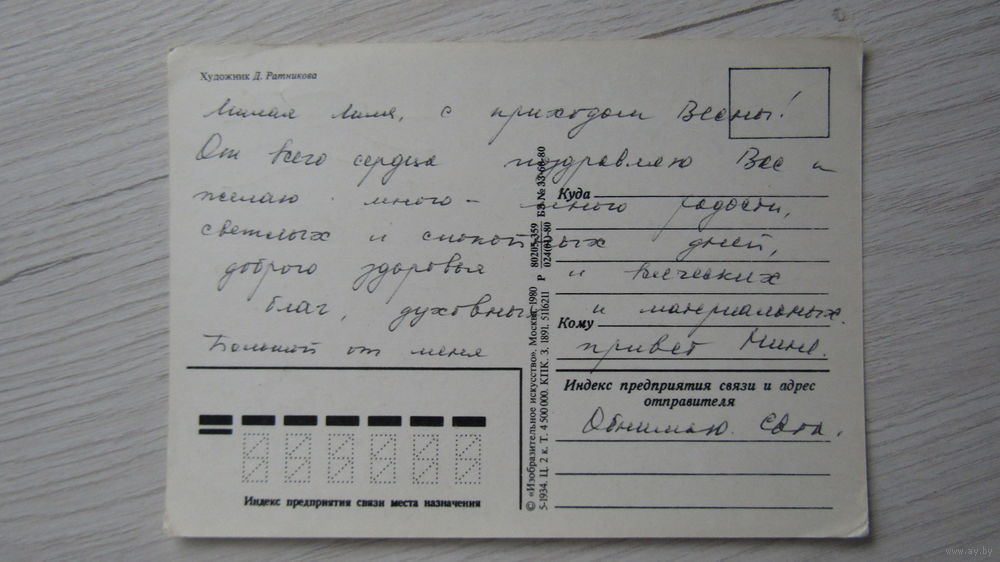 Художник Д. Ратникова
Милая Лиля, с приходом Весны!
От всего сердца поздравляю Вас и
желаю много-много радости,
светлых и спокойных дней,
доброго здоровья и всяческих
благ, духовных и материальных.
Большой от меня привет Нине.
Обнимаю.
Куда
Кому
Индекс предприятия связи и адрес
отправителя
Индекс предприятия связи места назначения
© «Изобразительное искусство». Москва. 1980
5-1934. Ц. 2 к. Т. 4 500 000. КПК. З. 1891. 5116211
Р 80205-359 БЗ № 33-68-80
024(01)-80
www.ay.by